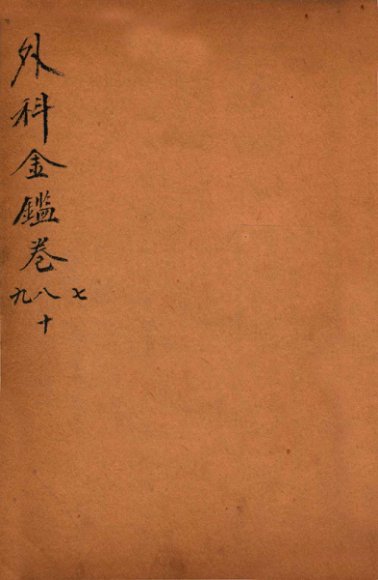 外科金鑑卷
七八九
十